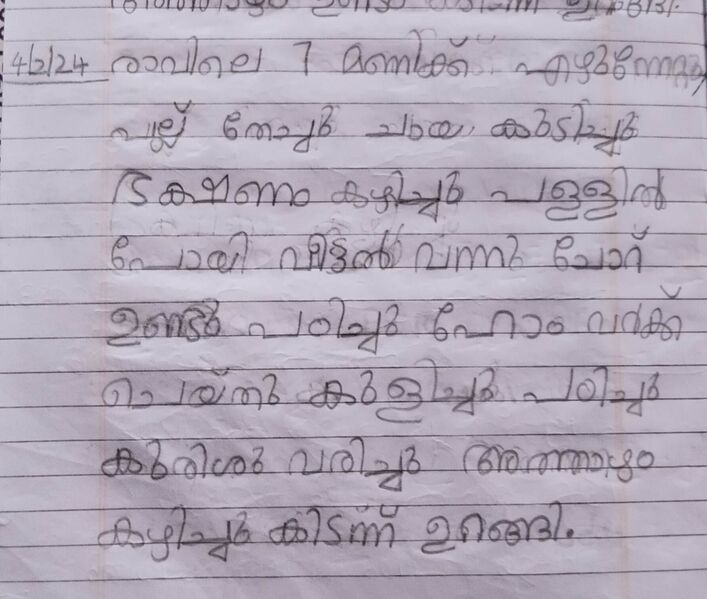 4/2/24 രാവിലെ 7 മണിക്ക് എഴുന്നേറ്റു
പല്ല് തേച്ചു ചായ കുടിച്ചു
ഭക്ഷണം കഴിച്ചു പള്ളിൽ
പോയി വീട്ടിൽ വന്നു ചോറ്
ഉണ്ടു പഠിച്ചു ഹോം വർക്ക്
ചെയ്തു കുളിച്ചു പഠിച്ചു
കുരിശു വരിച്ചു അത്താഴം
കഴിച്ചു കിടന്ന് ഉറങ്ങി.